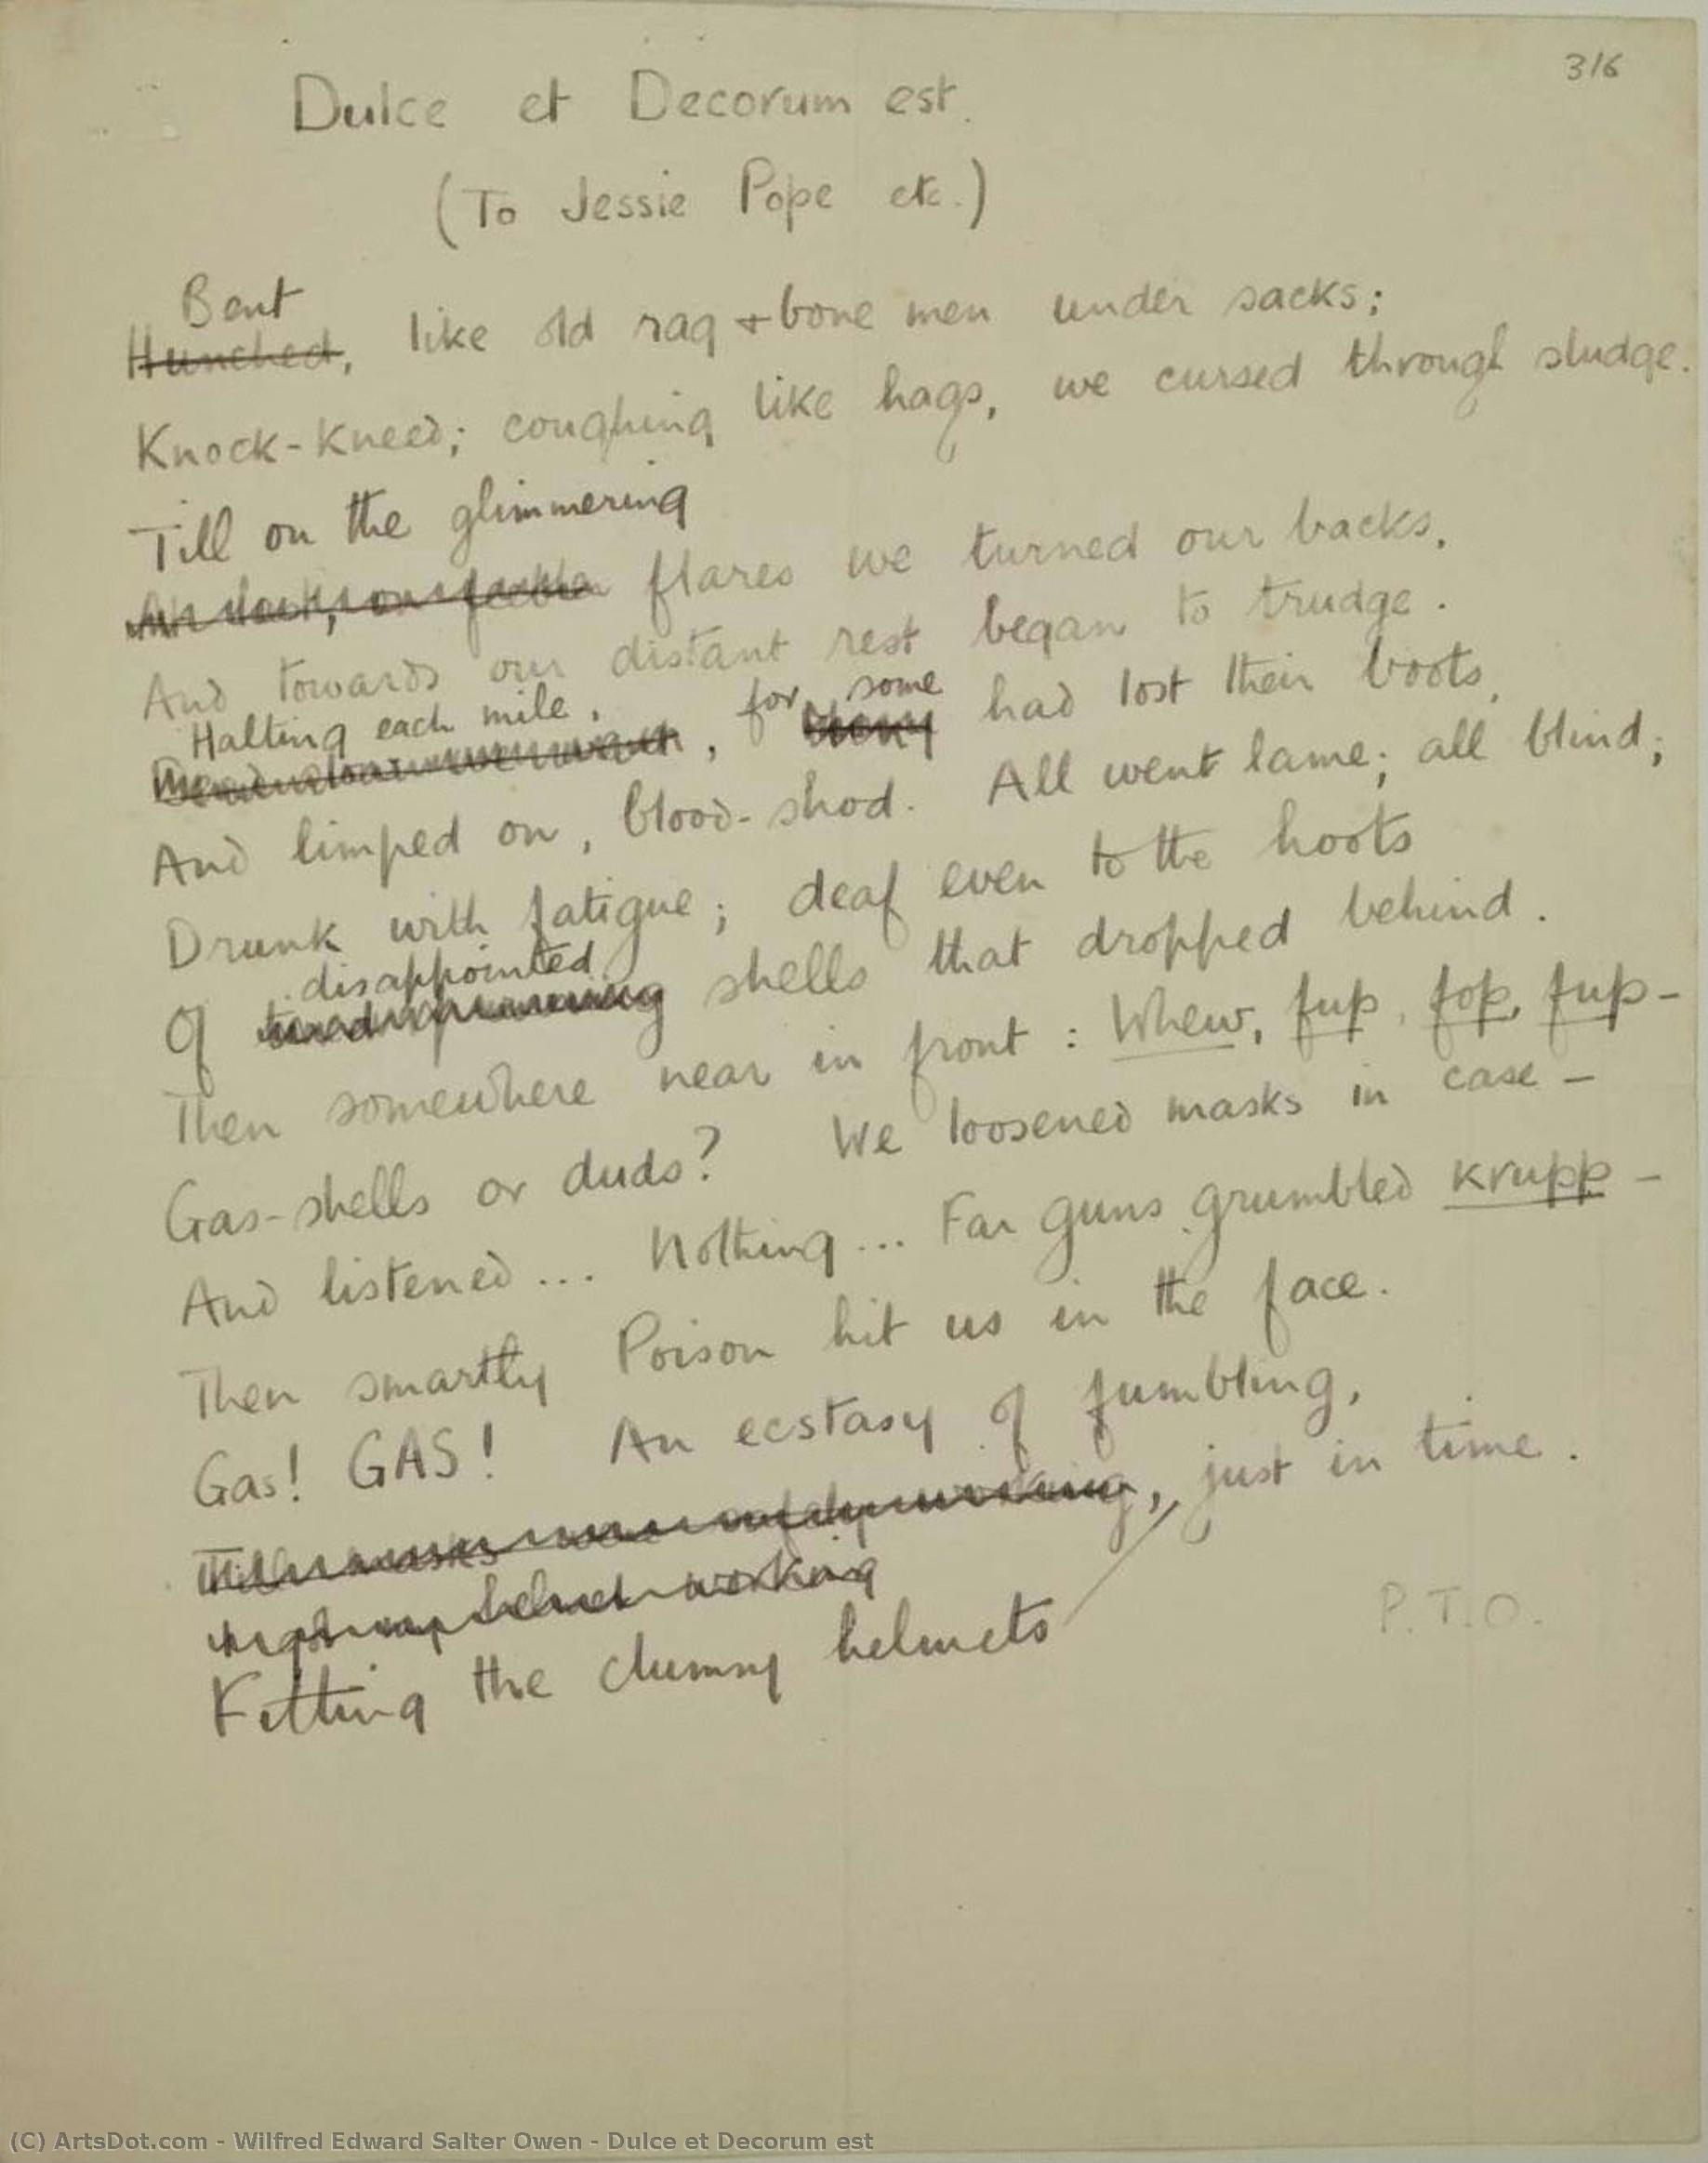 316
Dulce et Decorum est.
(To Jessie Pope etc.)
Bent
Hunched, like old rag + bone men under sacks;
Knock-kneed; coughing like hags, we cursed through sludge.
Till on the glimmering
flares we turned our backs,
And towards our distant rest began to trudge.
Halting each mile, for some
had lost their boots,
And limped on, blood-shod. All went lame; all blind;
Drunk with fatigue; deaf even to the hoots
disappointed
Of shells that dropped behind.
Then somewhere near in front: Whew, fup, fop, fup-
Gas-shells or duds? We loosened masks in case -
And listened... Nothing... Far guns grumbled krupp -
Then smartly Poison hit us in the face.
Gas! GAS! An ecstasy of fumbling,
, just in time.
Fitting the clumsy helmets
P.T.O.
(C) ArtsDot.com - Wilfred Edward Salter Owen - Dulce et Decorum est